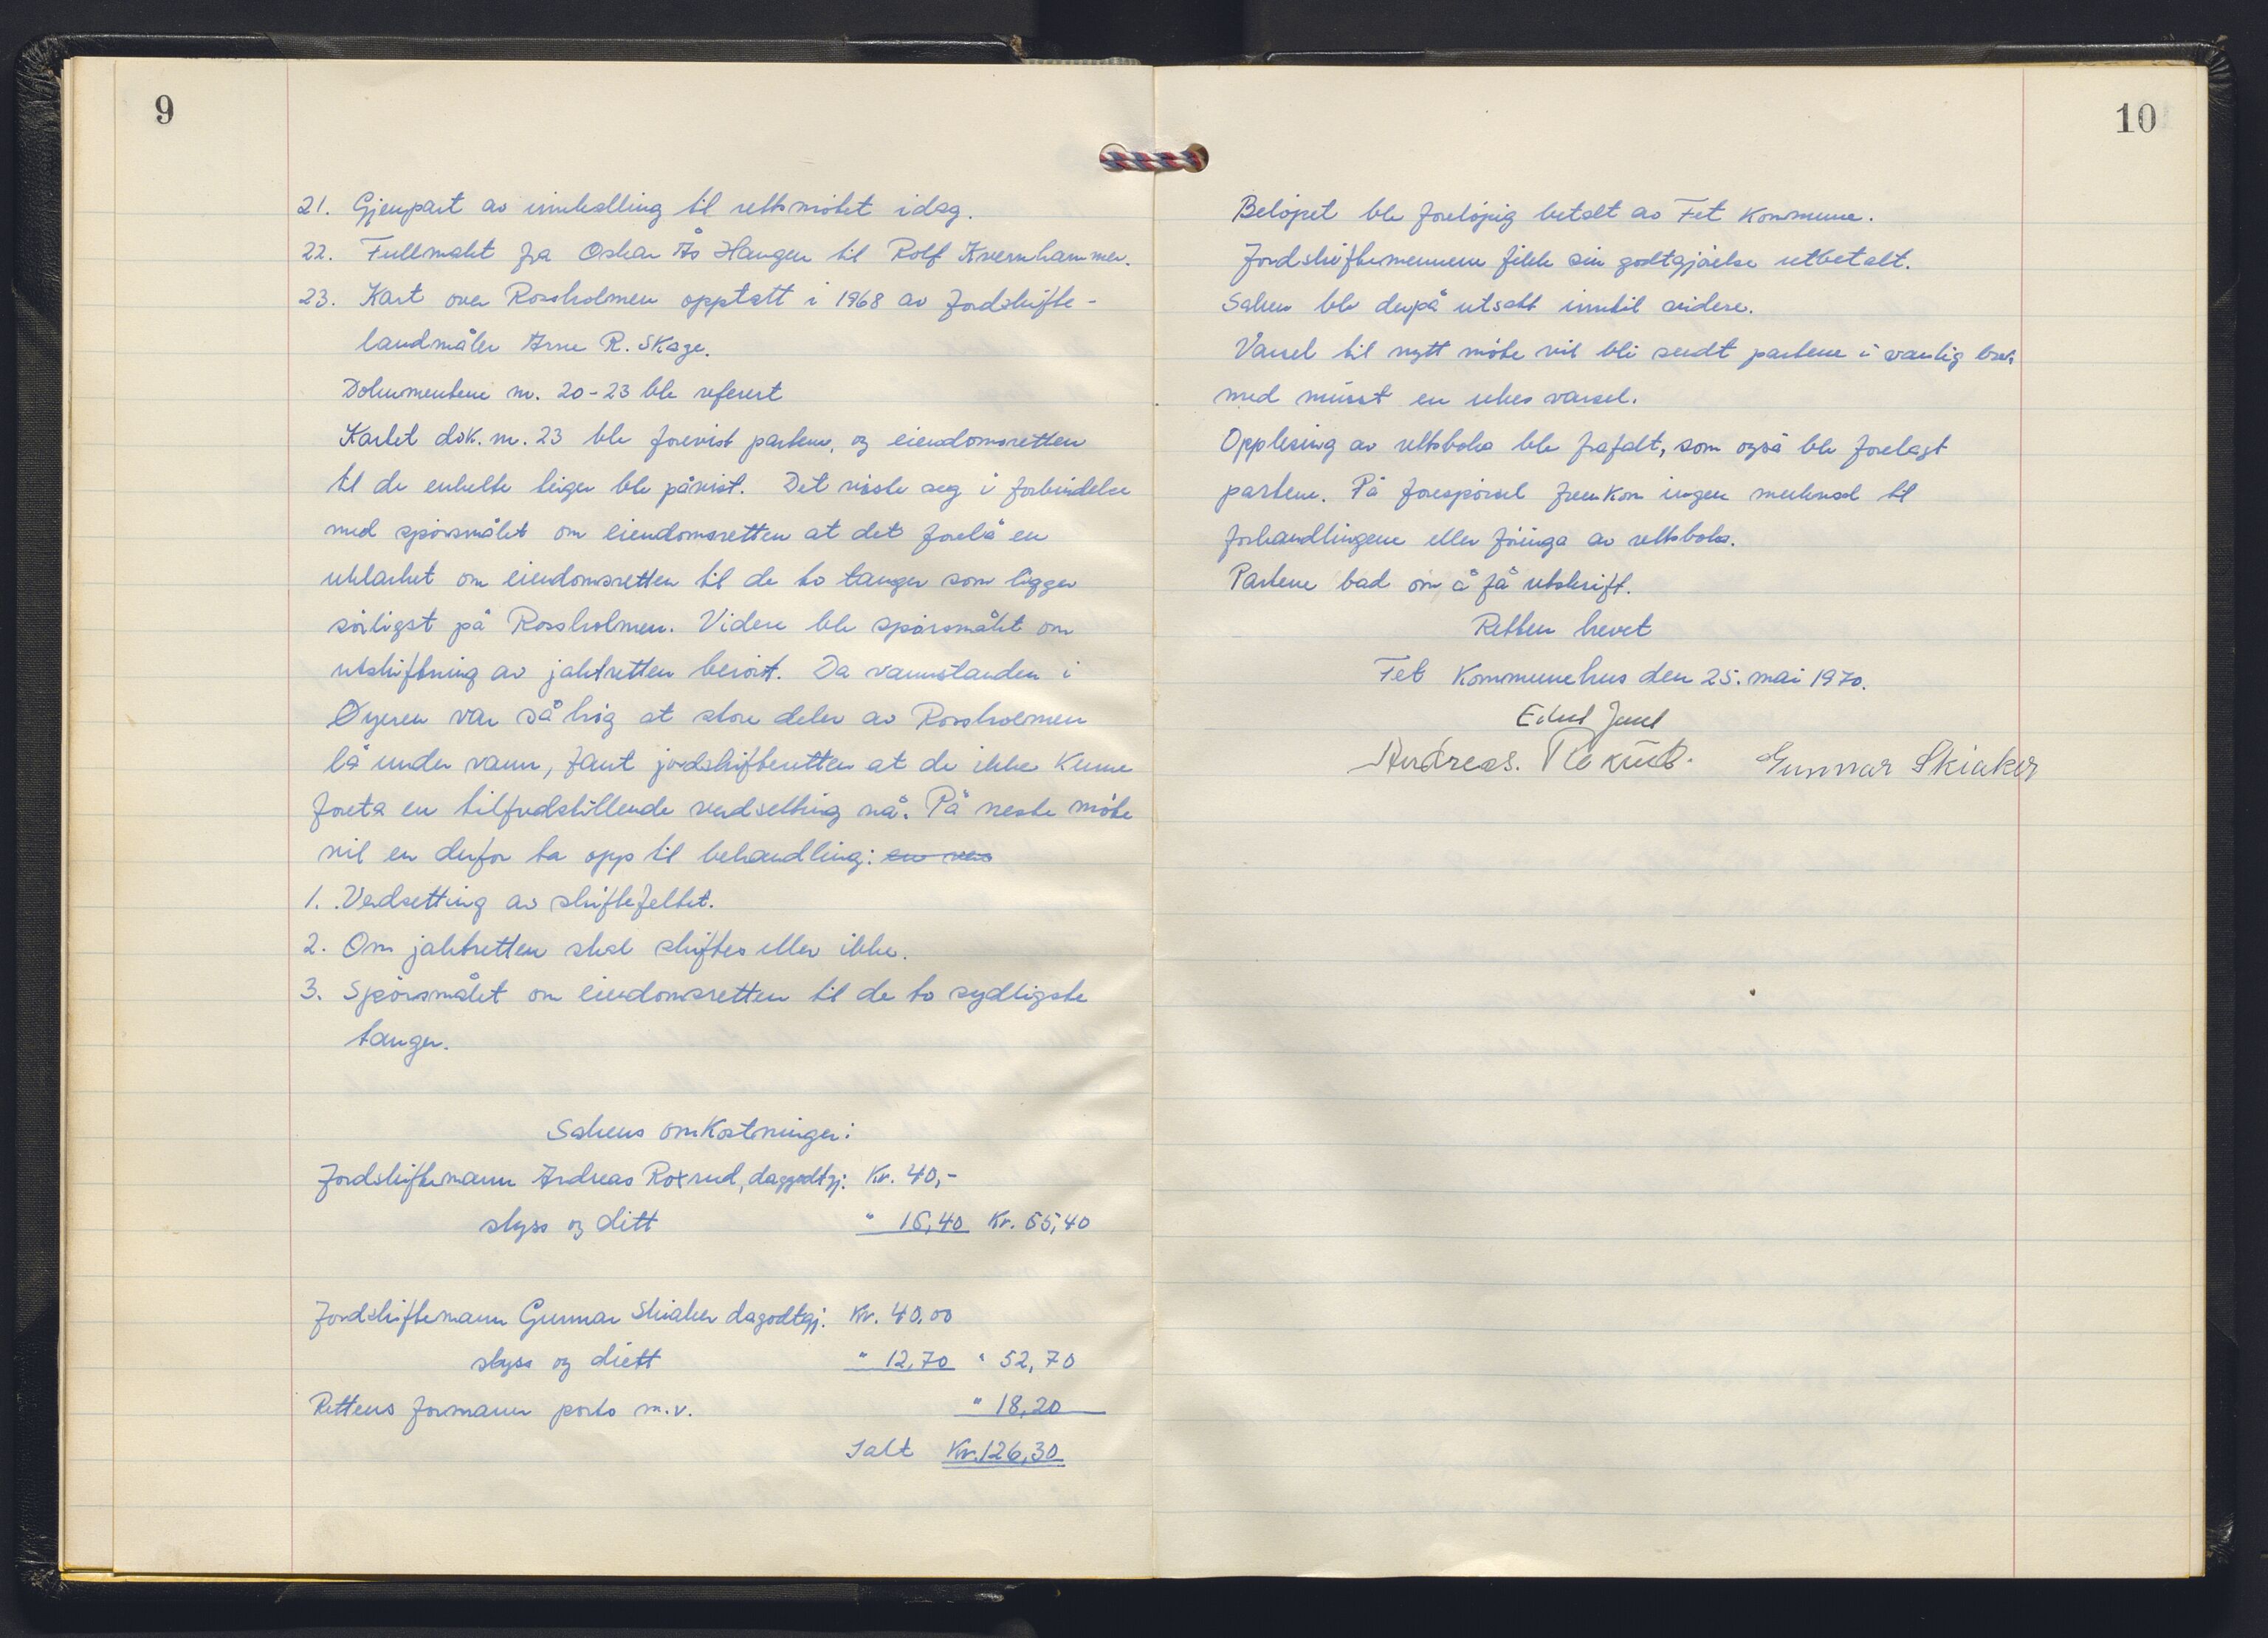 9
21. Gjenpart av innkalling til rettsmøtet idag.
22. Fullmakt fra Oskar Ås Haugen til Rolf Kvernhammer.
23. Kart over Rossholmen opptatt i 1968 av jordskifte-
landmåler Arne R. Skage.
Dokumentene nr. 20-23 ble referert
Kartet dok. nr. 23 ble forevist partene, og eiendomsretten
til de enkelte teiger ble påvist. Det viste seg i forbindelse
med spørsmålet om eiendomsretten at det forelå en
uklarhet om eiendomsretten til de to tanger som ligger
sørligst på Rossholmen. Videre ble spørsmålet om
utskiftning av jaktretten berört. Da vannstanden i
Øyeren var så høg at store deler av Rossholmen
lå under vann, fant jordskifteretten at de ikke kunne
foreta en tilfredstillende verdsetting nå. På neste møte
vil en derfor ta opp til behandling: en ves
1. Verdsetting av skiftefeltet.
2. Om jaktretten skal skiftes eller ikke.
3. Spørsmålet om eiendomsretten til de to sydligste
tanger.
Sakens omkostninger:
Jordskiftemann Andreas Roxrud, daggodtgj. Kr. 40,-
skyss og ditt " 15,40 Kr. 55,40
Jordskiftemann Gunnar Skiaker dagodtgj. Kr. 40,00
skyss og diett " 12,70 " 52,70
Rettens formann porto m.v. " 18,20
Ialt Kr. 126,30
10
Beløpet ble foreløpig betalt av Fet Kommune.
Jordskiftemennene fikk sin godtgjørelse utbetalt.
Saken ble derpå utsatt inntil videre.
Varsel til nytt møte vil bli sendt partene i vanlig brev
med minst en ukes varsel.
Opplesing av rettsboka ble frafalt, som også ble forelagt
partene. På forespørsel fremkom ingen merknad til
forhandlingene eller føringa av rettsboka.
Partene bad om å få utskrift.
Retten hevet
Fet Kommunehus den 25. mai 1970.
Andreas. Roxrud. Gunnar Skiaker